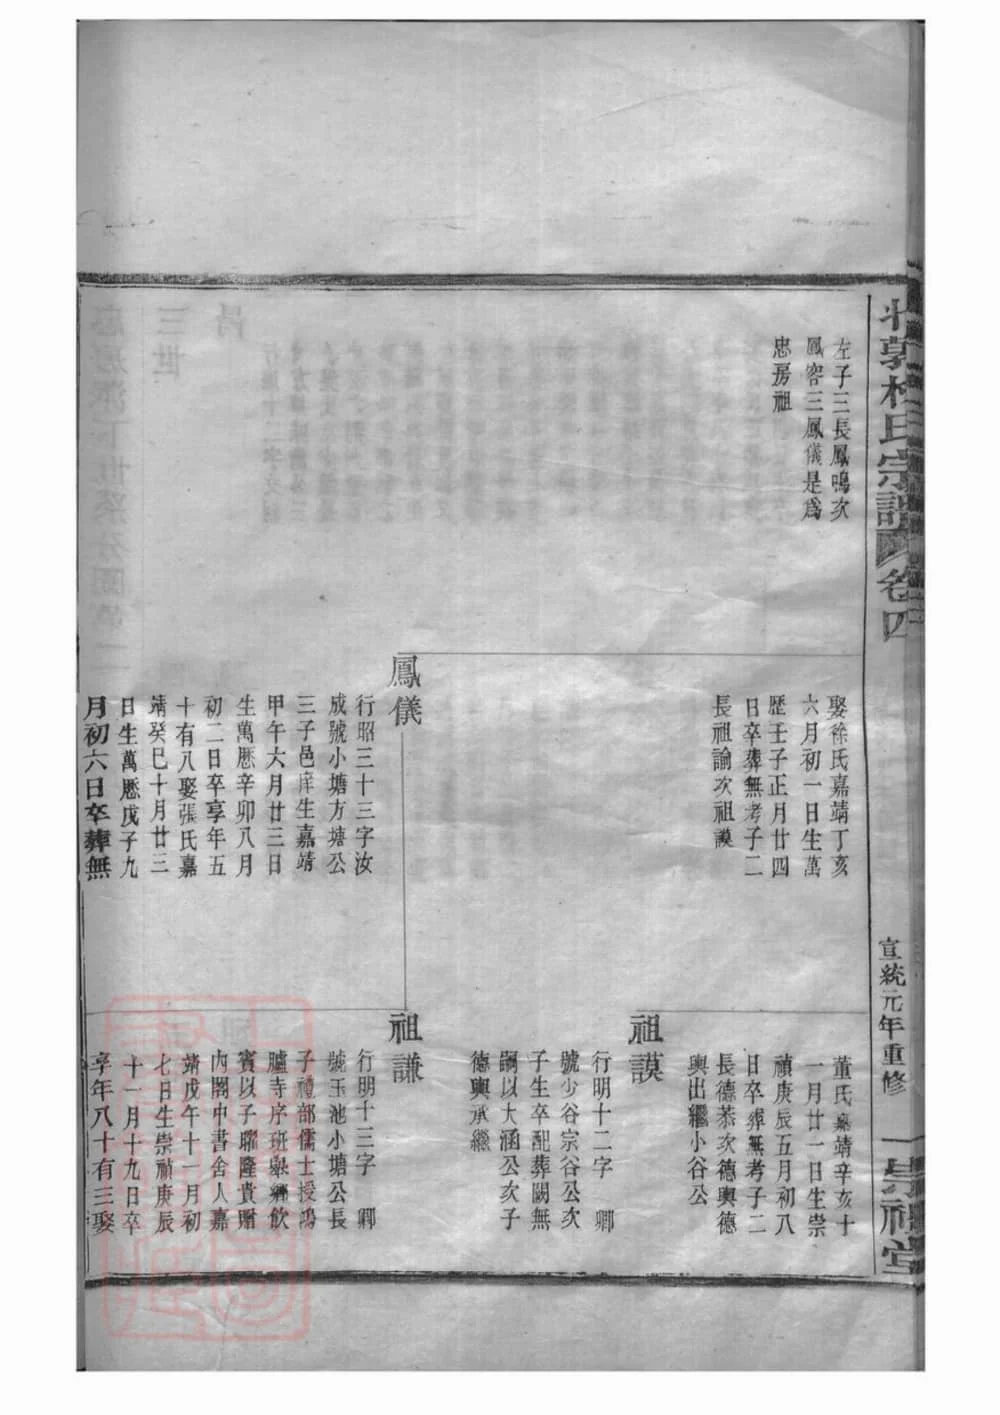 敦杜氏宗譜
卷四
宣統元年重修
左子三長鳳鳴次
鳳容三鳳儀是爲
忠房祖
娶徐氏嘉靖丁亥
六月初一日生萬
歷壬子正月廿四
日卒葬無考子二
長祖諭次祖謨
鳳儀
行昭三十三字汝
成號小塘方塘公
三子邑庠生嘉靖
甲午六月廿三日
生萬厯辛卯八月
初二日卒享年五
十有八娶張氏嘉
靖癸巳十月廿三
日生萬厯戊子九
月初六日卒葬無
董氏嘉靖辛亥十
一月廿一日生崇
禎庚辰五月初八
日卒葬無考子二
長德恭次德輿德
輿出繼小谷公
祖謨
行明十二字 卿
號少谷宗谷公次
子生卒配葬闕無
嗣以大涵公次子
德輿承繼
祖謙
行明十三字 卿
號玉池小塘公長
子禮部儒士授鴻
臚寺序班舉鄉飲
賓以子聯隆貴贈
內閣中書舍人嘉
靖戊午十一月初
七日生崇禎庚辰
十一月十九日卒
享年八十有三娶